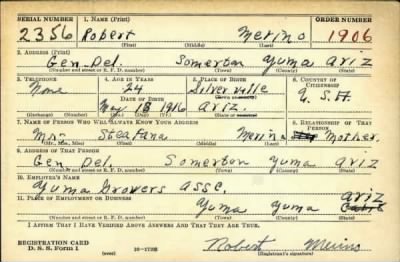 SERIAL NUMBER 1. NAME (Print) ORDER NUMBER
2356 Robert Merino 1906
(First) (Middle) (Last)
2. ADDRESS (Print)
Gen. Del. Somerton Yuma Ariz
(Number and street or R. F. D. number) (Town) (County) (State)
3. TELEPHONE 4. AGE IN YEARS 5. PLACE OF BIRTH 6. COUNTRY OF CITIZENSHIP
None 24 Silverville U. S. A.
DATE OF BIRTH (Town or county)
May 18 1916 Ariz.
(Mo.) (Day) (Yr.) (State or country)
7. NAME OF PERSON WHO WILL ALWAYS KNOW YOUR ADDRESS 8. RELATIONSHIP OF THAT PERSON
Mrs Merino Mother
(Mr., Mrs., Miss) (First) (Middle) (Last)
9. ADDRESS OF THAT PERSON
Gen Del. Somerton Yuma Ariz
(Number and street or R. F. D. number) (Town) (County) (State)
10. EMPLOYER'S NAME
Yuma Growers Asse.
11. PLACE OF EMPLOYMENT OR BUSINESS Ariz
Yuma Yuma
(Number and street or R. F. D. number) (Town) (County) (State)
I AFFIRM THAT I HAVE VERIFIED ABOVE ANSWERS AND THAT THEY ARE TRUE.
REGISTRATION CARD
D. S. S. Form 1 (over) 16—17105 Robert Merino
(Registrant's signature)